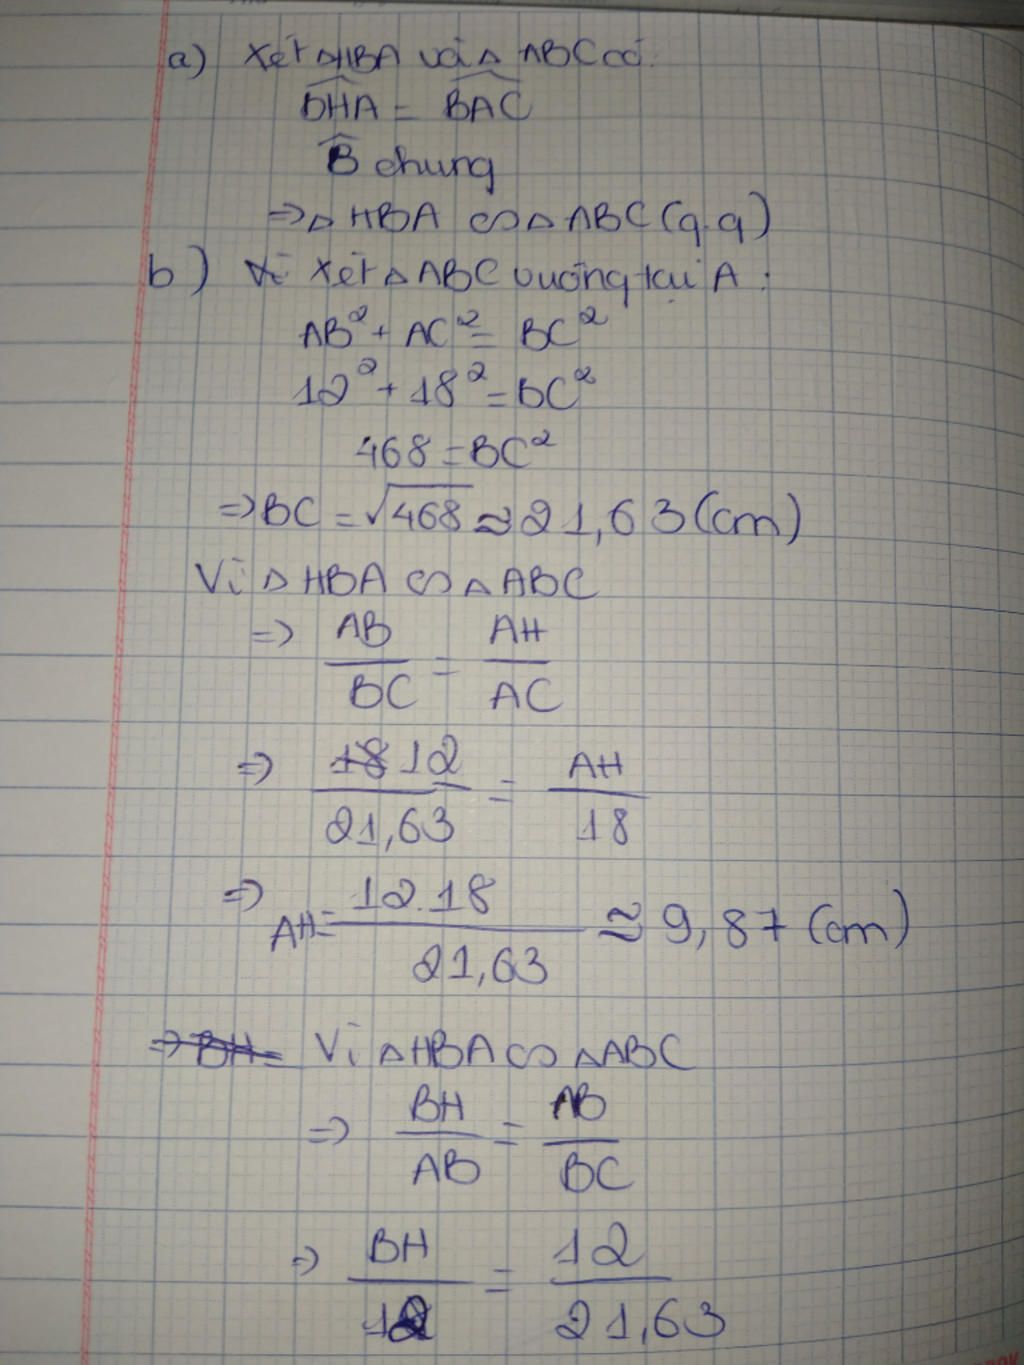 a) Xét ΔHBA với Δ ABC có:
BHA = BAC
B chung
=> Δ HBA ∽ Δ ABC (g.g)
b) Vì Xét Δ ABC vuông tại A:
AB² + AC² = BC²
12² + 18² = BC²
468 = BC²
=> BC = √468 ≈ 21,63 (cm)
Vì Δ HBA ∽ Δ ABC
=> AB/BC = AH/AC
=> 18 12/21,63 = AH/18
=> AH = 12.18/21,63 ≈ 9,87 (cm)
=> BH = Vì Δ HBA ∽ Δ ABC
=> BH/AB = AB/BC
=> BH/12 = 12/21,63